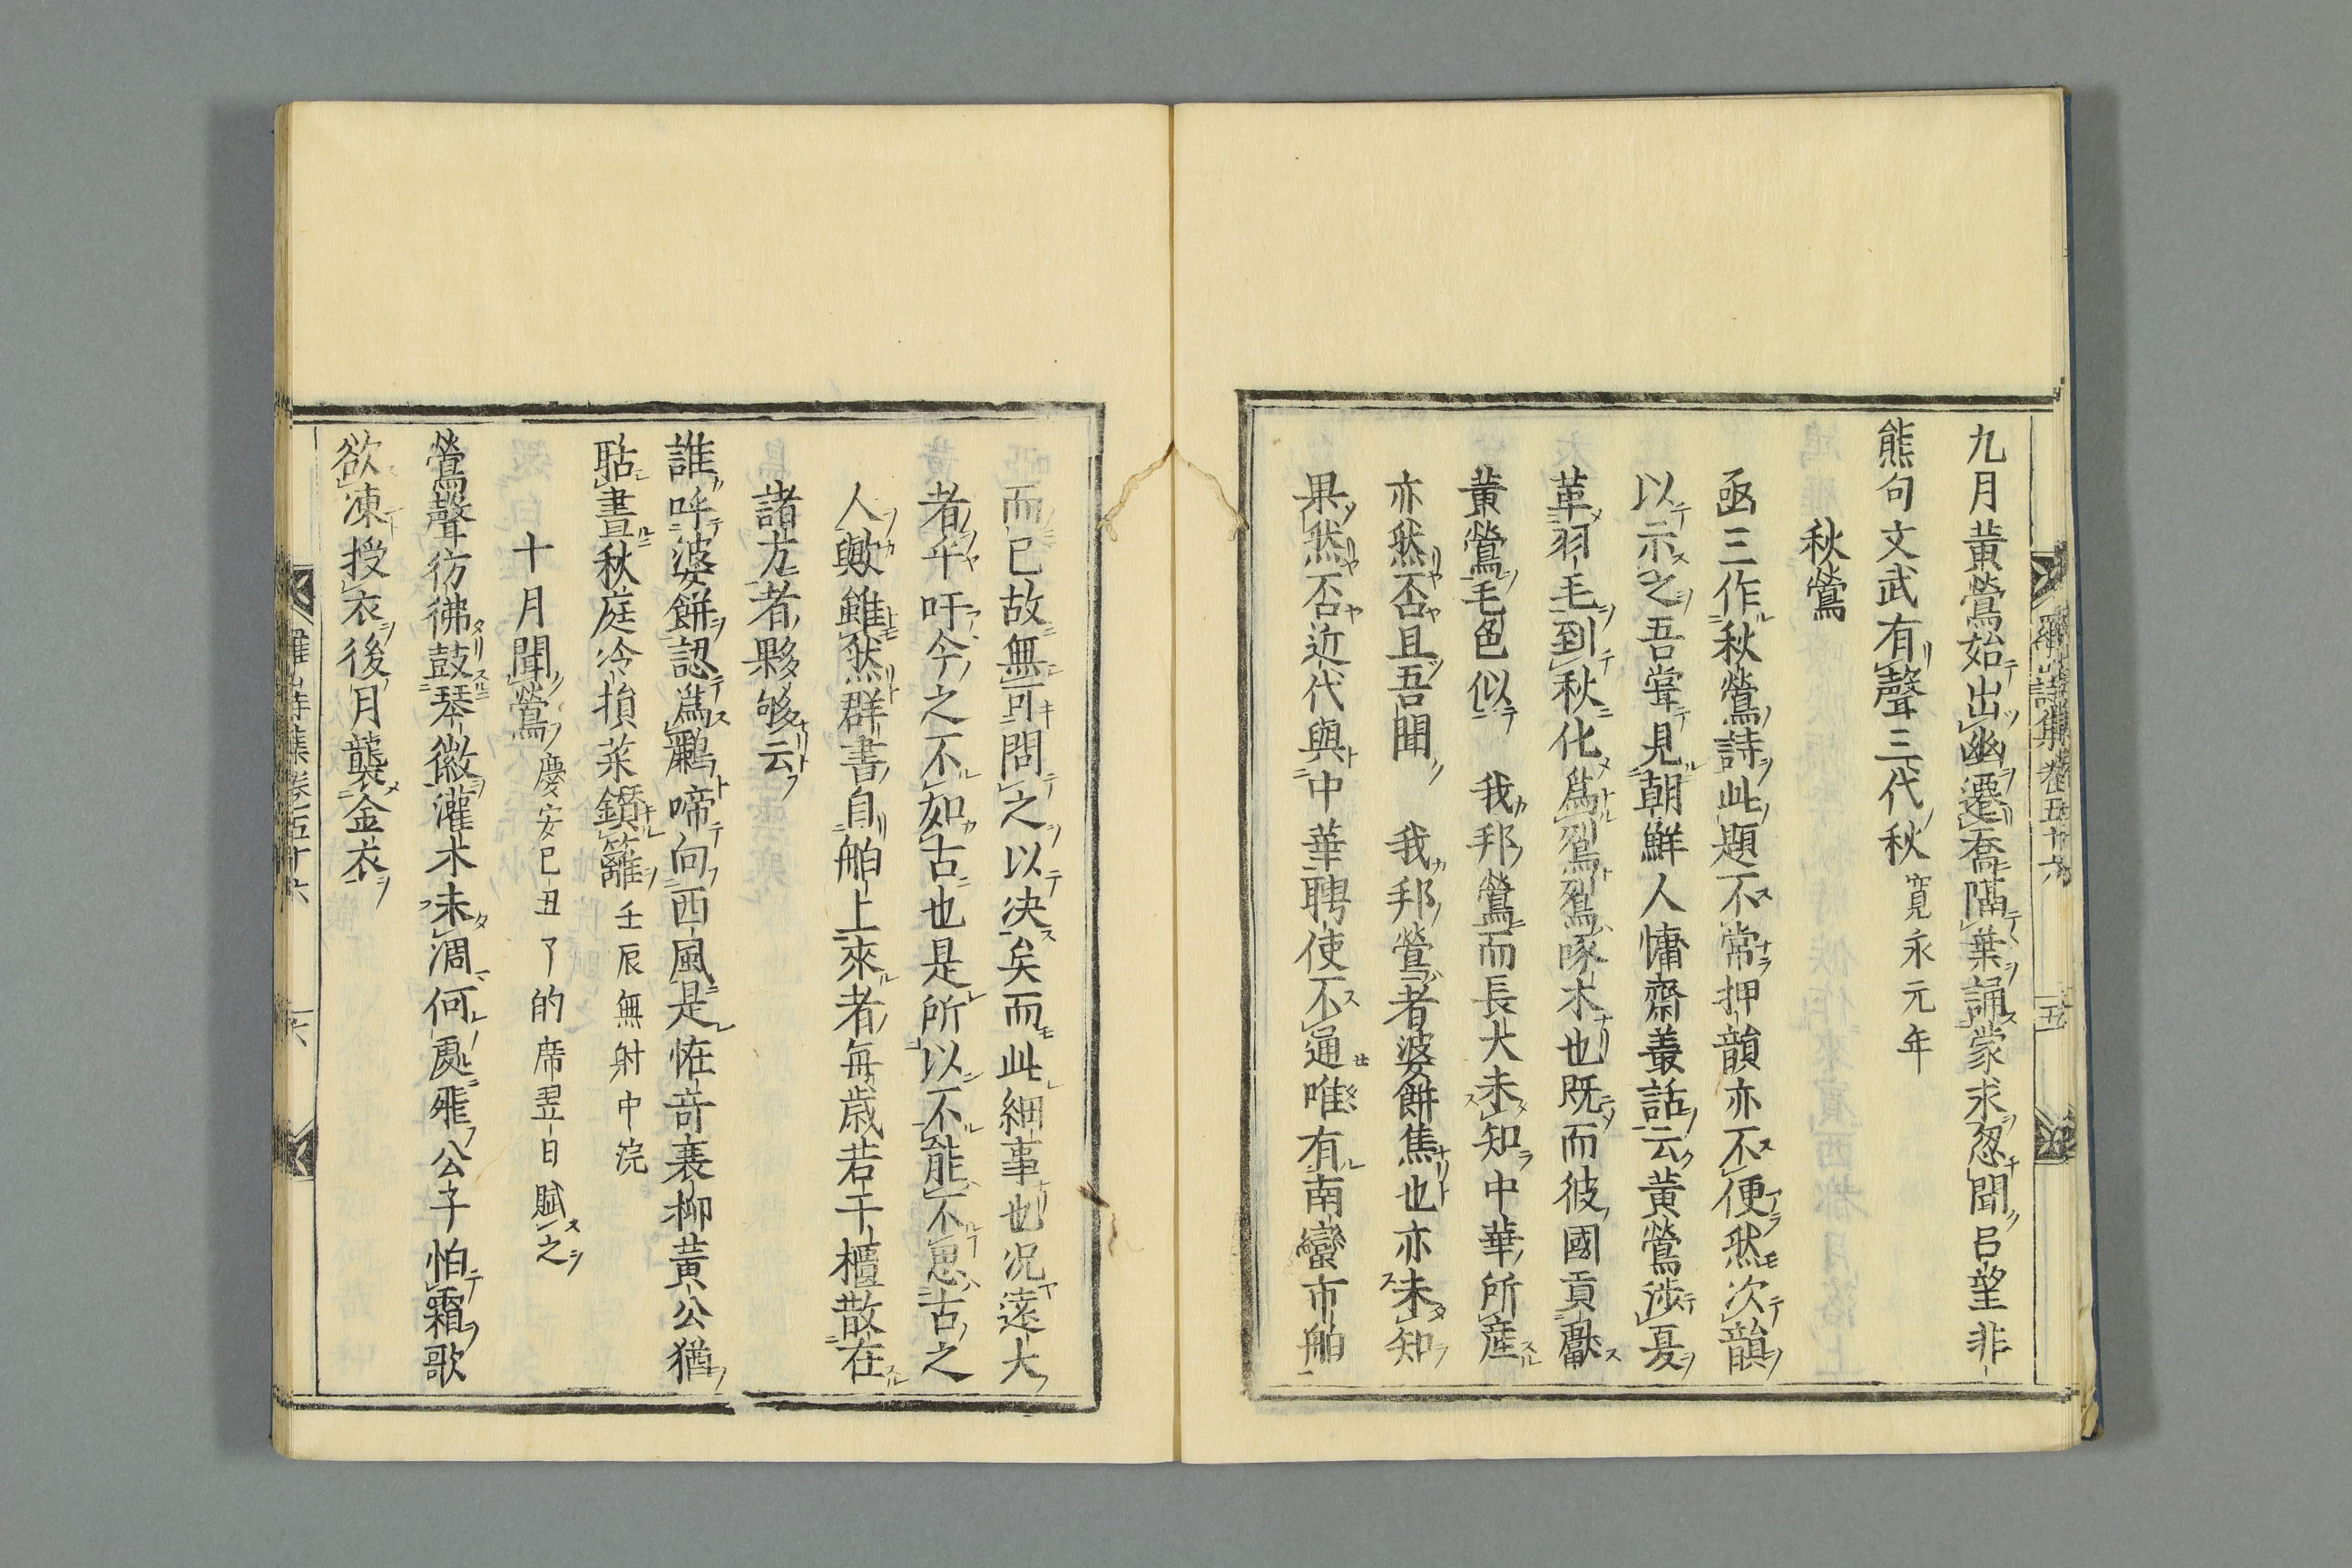 羅山詩集卷五十六 五
九月黄鶯始出幽遷喬隔葉誦蒙求忽聞呂望非
熊句文武有聲三代秋 寛永元年
秋鶯
函三作秋鶯詩此題不常押韻亦不便然次韻
以示之吾甞見朝鮮人慵齋叢話云黄鶯涉夏
革羽毛到秋化爲鴷鴷啄木也既而彼國貢獻
黄鶯毛色似 我邦鶯而長大未知中華所産
亦然否且吾聞 我邦鶯者婆餅焦也亦未知
果然否近代與中華聘使不通唯有南蠻市舶
而已故無可問之以决矣而此細事也况遠大
者乎吁今之不如古也是所以不能不思古之
人歟雖然群書自舶上來者毎歳若干櫃散在
諸方者夥够云
誰呼婆餅認爲鸝啼向西風是恠竒裘柳黄公猶
聒晝秋庭冷損菜鑽籬 壬辰無射中浣
十月聞鶯 慶安己丑了的席翌日賦之
鶯聲彷彿鼓琴徽灌木未凋何處飛公子怕霜歌
欲凍授衣後月襲金衣
羅山詩集卷五十六 六